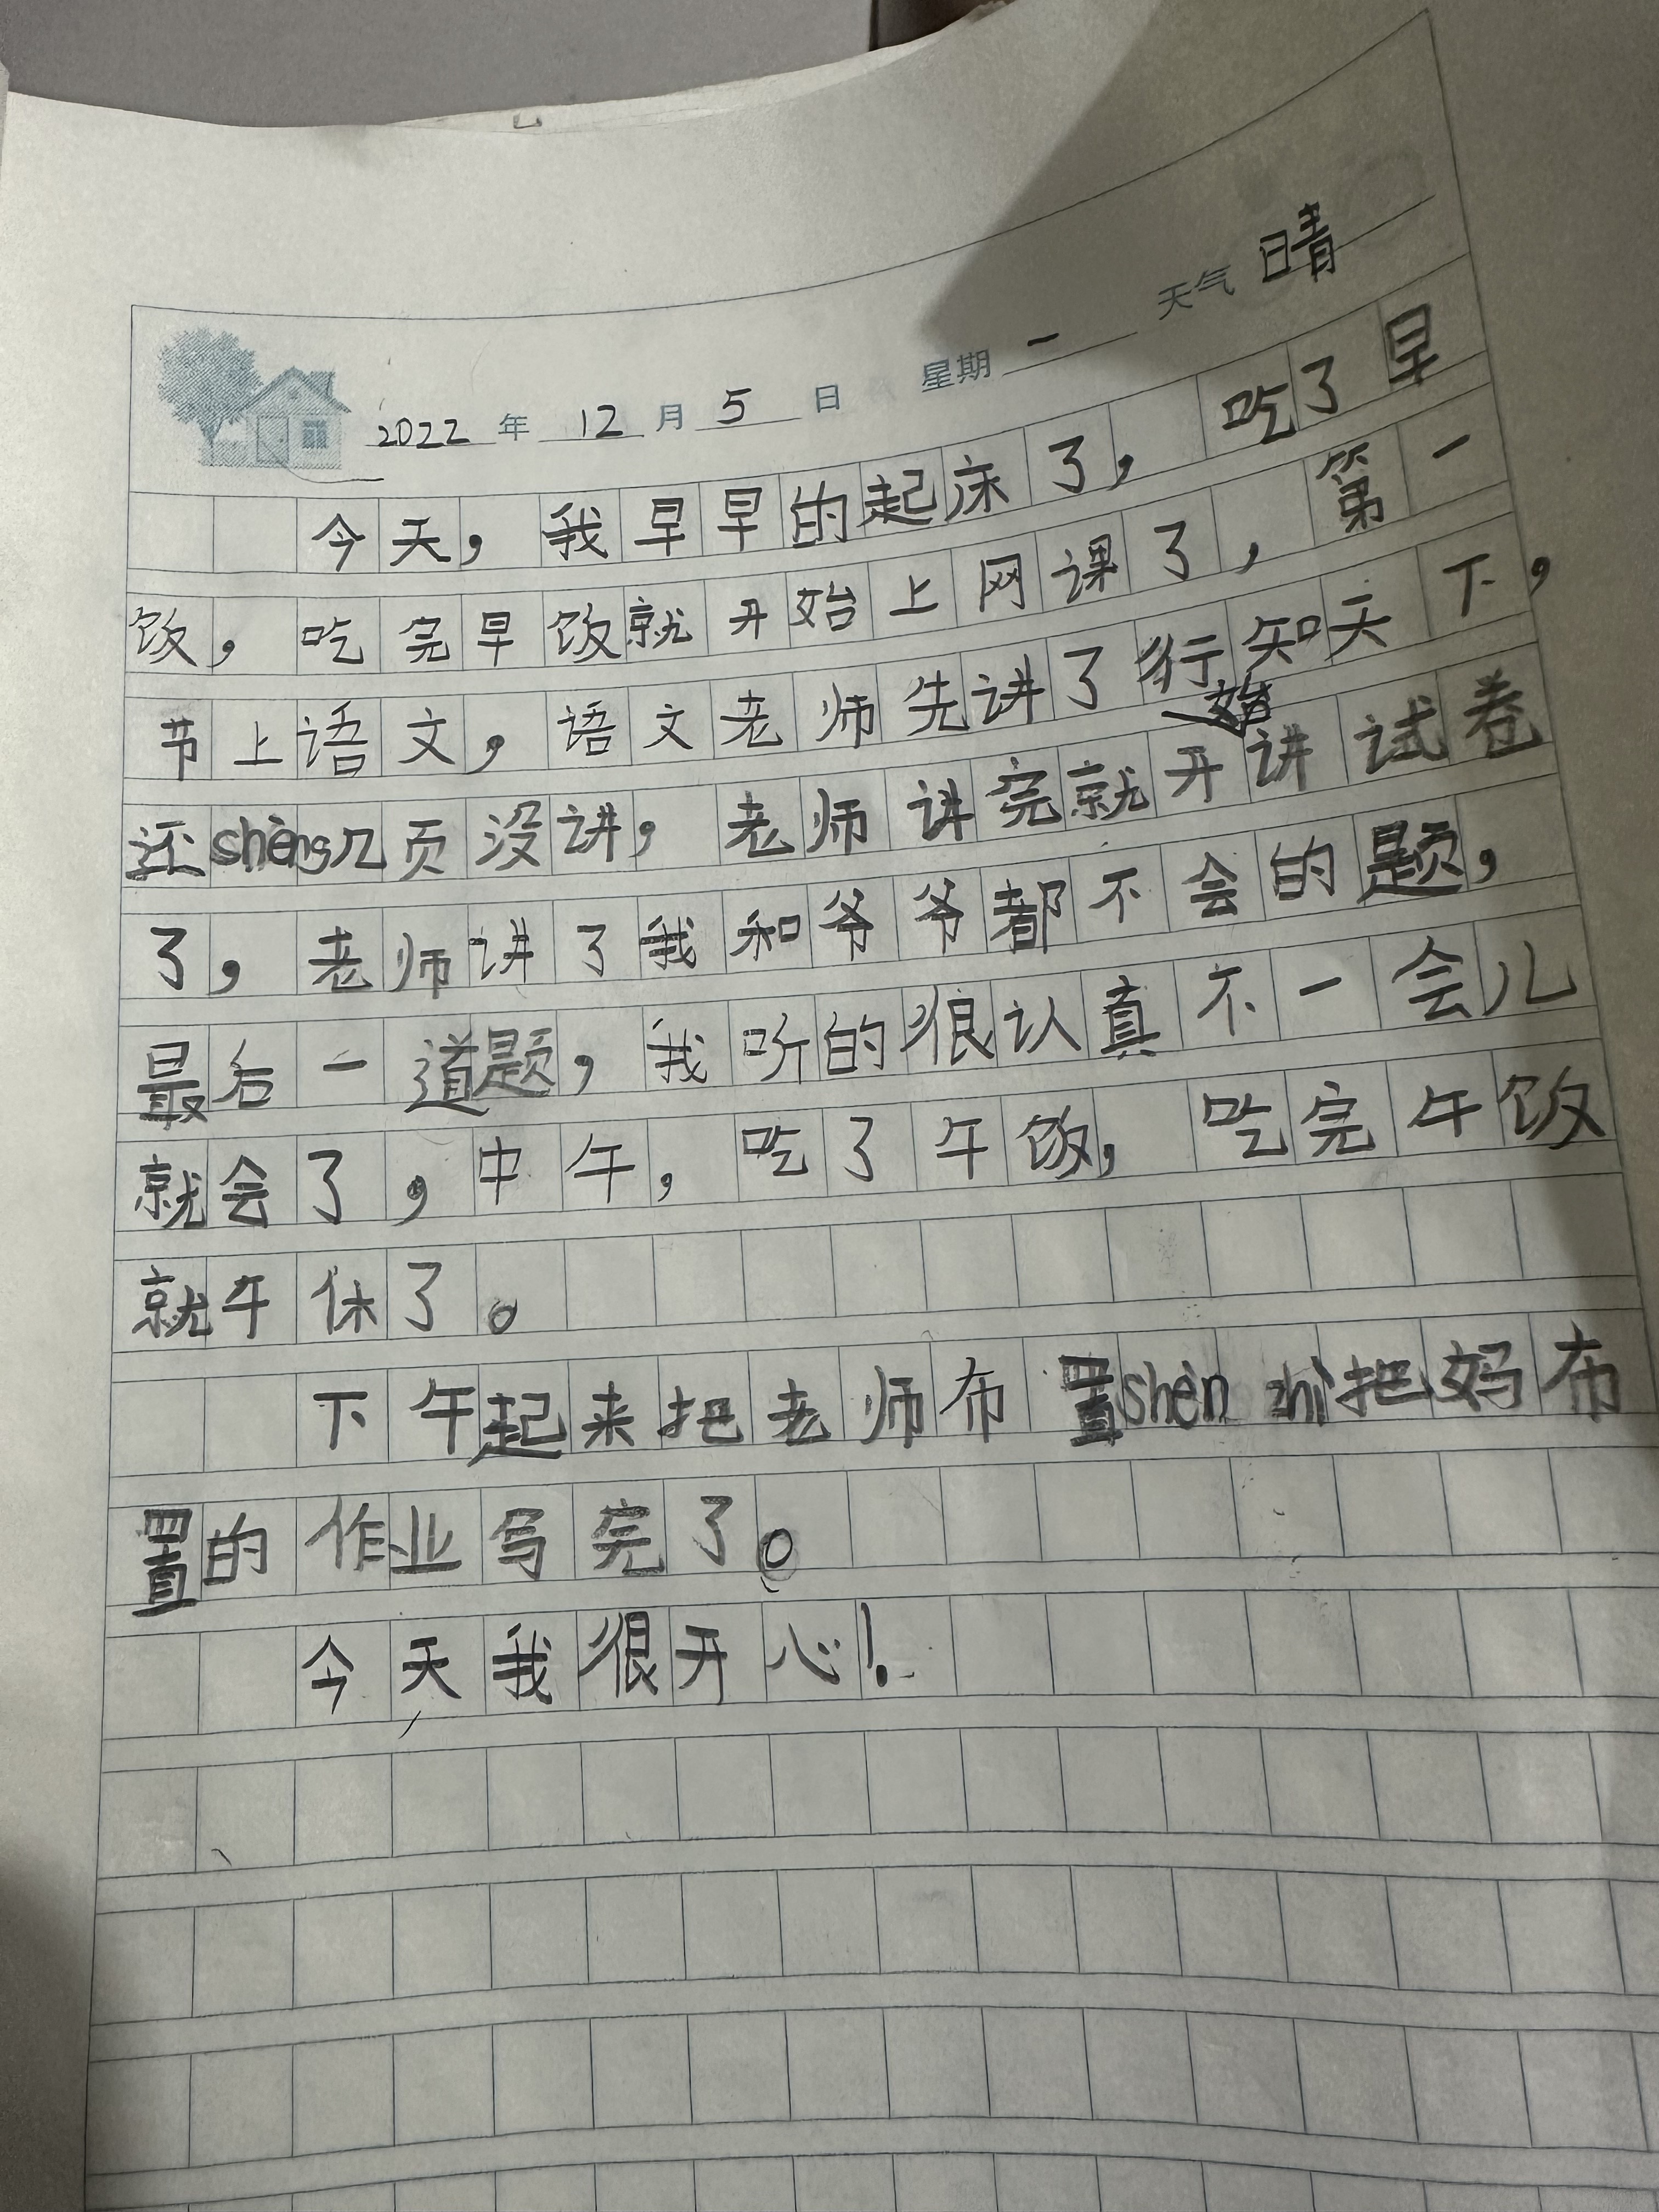 2022年12月5日 星期一 天气晴
今天，我早早的起床了，吃了早
饭，吃完早饭就开始上网课了，第一
节上语文，语文老师先讲了行知天下，
还shèng几页没讲，老师讲完就开始讲试卷
了，老师讲了我和爷爷都不会的题，
最后一道题，我听的很认真不一会儿
就会了，中午，吃了午饭，吃完午饭
就午休了。
下午起来把老师布置shèn zhì把妈布
置的作业写完了。
今天我很开心！